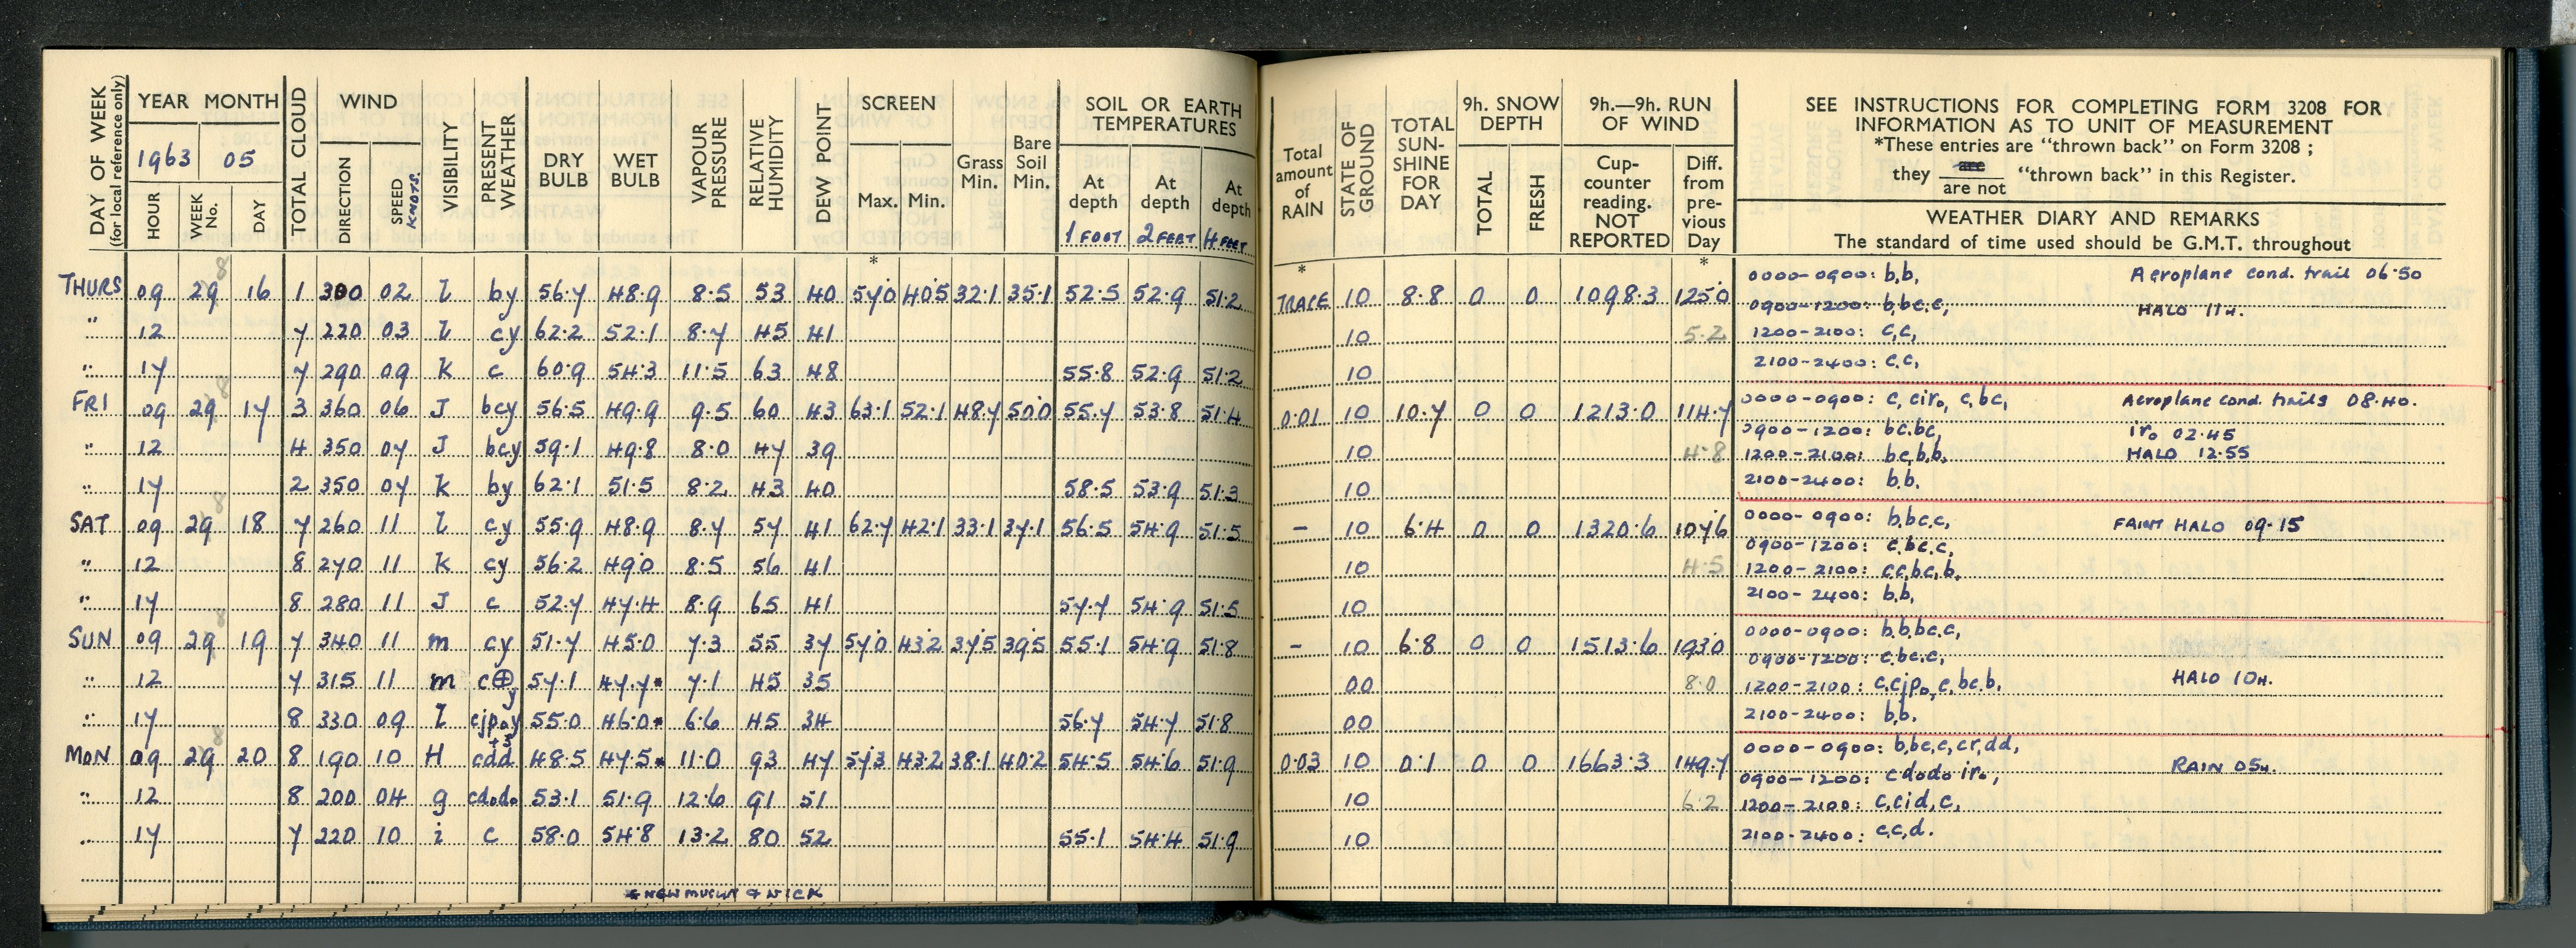 DAY OF WEEK (for local reference only)
YEAR MONTH
1963 05
HOUR WEEK No. DAY
TOTAL CLOUD
WIND
DIRECTION SPEED KNOTS.
VISIBILITY
PRESENT WEATHER
DRY BULB
WET BULB
VAPOUR PRESSURE
RELATIVE HUMIDITY
DEW POINT
SCREEN
Max. Min.
Grass Min.
Bare Soil Min.
SOIL OR EARTH TEMPERATURES
At depth 1 FOOT
At depth 2 FEET
At depth 4 FEET
Total amount of RAIN
STATE OF GROUND
TOTAL SUN-SHINE FOR DAY
9h. SNOW DEPTH
TOTAL FRESH
9h.—9h. RUN OF WIND
Cup-counter reading. NOT REPORTED
Diff. from pre-vious Day
SEE INSTRUCTIONS FOR COMPLETING FORM 3208 FOR
INFORMATION AS TO UNIT OF MEASUREMENT
*These entries are "thrown back" on Form 3208 ;
they are / are not "thrown back" in this Register.
WEATHER DIARY AND REMARKS
The standard of time used should be G.M.T. throughout
* * *
THURS 09 29 16 1 300 02 l by 56.7 48.9 8.5 53 40 57.0 40.5 32.1 35.1 52.5 52.9 51.2 TRACE 10 8.8 0 0 1098.3 125.0
0000-0900: b,b, Aeroplane cond. trail 06.50
0900-1200: b,bc.c, HALO 11H.
" 12 7 220 03 l cy 62.2 52.1 8.7 45 41 10 5.2 1200-2100: c,c,
" 17 7 290 09 k c 60.9 54.3 11.5 63 48 55.8 52.9 51.2 10 2100-2400: c,c,
FRI 09 29 17 3 360 06 J bcy 56.5 49.9 9.5 60 43 63.1 52.1 48.7 50.0 55.7 53.8 51.4 0.01 10 10.7 0 0 1213.0 114.7
0000-0900: c, ciro, c, bc, Aeroplane cond. trails 08.40.
0900-1200: bc.bc, iro 02.45
" 12 4 350 07 J bcy 59.1 49.8 8.0 47 39 10 4.8 1200-2100: bc,b,b, HALO 12.55
" 17 2 350 07 k by 62.1 51.5 8.2 43 40 58.5 53.9 51.3 10 2100-2400: b.b.
SAT 09 29 18 7 260 11 l cy 55.9 48.9 8.7 57 41 62.7 42.1 33.1 37.1 56.5 54.9 51.5 - 10 6.4 0 0 1320.6 107.6
0000-0900: b,bc.c, FAINT HALO 09.15
0900-1200: c,bc.c,
" 12 8 270 11 k cy 56.2 49.0 8.5 56 41 10 4.5 1200-2100: c.c,bc,b,
" 17 8 280 11 J c 52.7 47.4 8.9 65 41 57.7 54.9 51.5 10 2100-2400: b,b,
SUN 09 29 19 7 340 11 m cy 51.7 45.0 7.3 55 37 57.0 43.2 37.5 39.5 55.1 54.9 51.8 - 10 6.8 0 0 1513.6 193.0
0000-0900: b.b,bc.c,
0900-1200: c,bc.c,
" 12 7 315 11 m c⊕y 57.1 47.7* 7.1 45 35 00 8.0 1200-2100: c,cjpo, c, bc.b. HALO 10H.
" 17 8 330 09 l cjpoy 55.0 46.0* 6.6 45 34 56.7 54.7 51.8 00 2100-2400: b,b.
MON 09 29 20 8 190 10 H cdd 48.5 47.5* 11.0 93 47 57.3 43.2 38.1 40.2 54.5 54.6 51.9 0.03 10 0.1 0 0 1663.3 149.7
0000-0900: b,bc,c,cr,dd,
0900-1200: cdodo iro, RAIN 05H.
" 12 8 200 04 g cdodo 53.1 51.9 12.6 91 51 10 6.2 1200-2100: c,cid,c,
" 17 7 220 10 i c 58.0 54.8 13.2 80 52 55.1 54.4 51.9 10 2100-2400: c,c,d.
* NEW MUSLIN & WICK